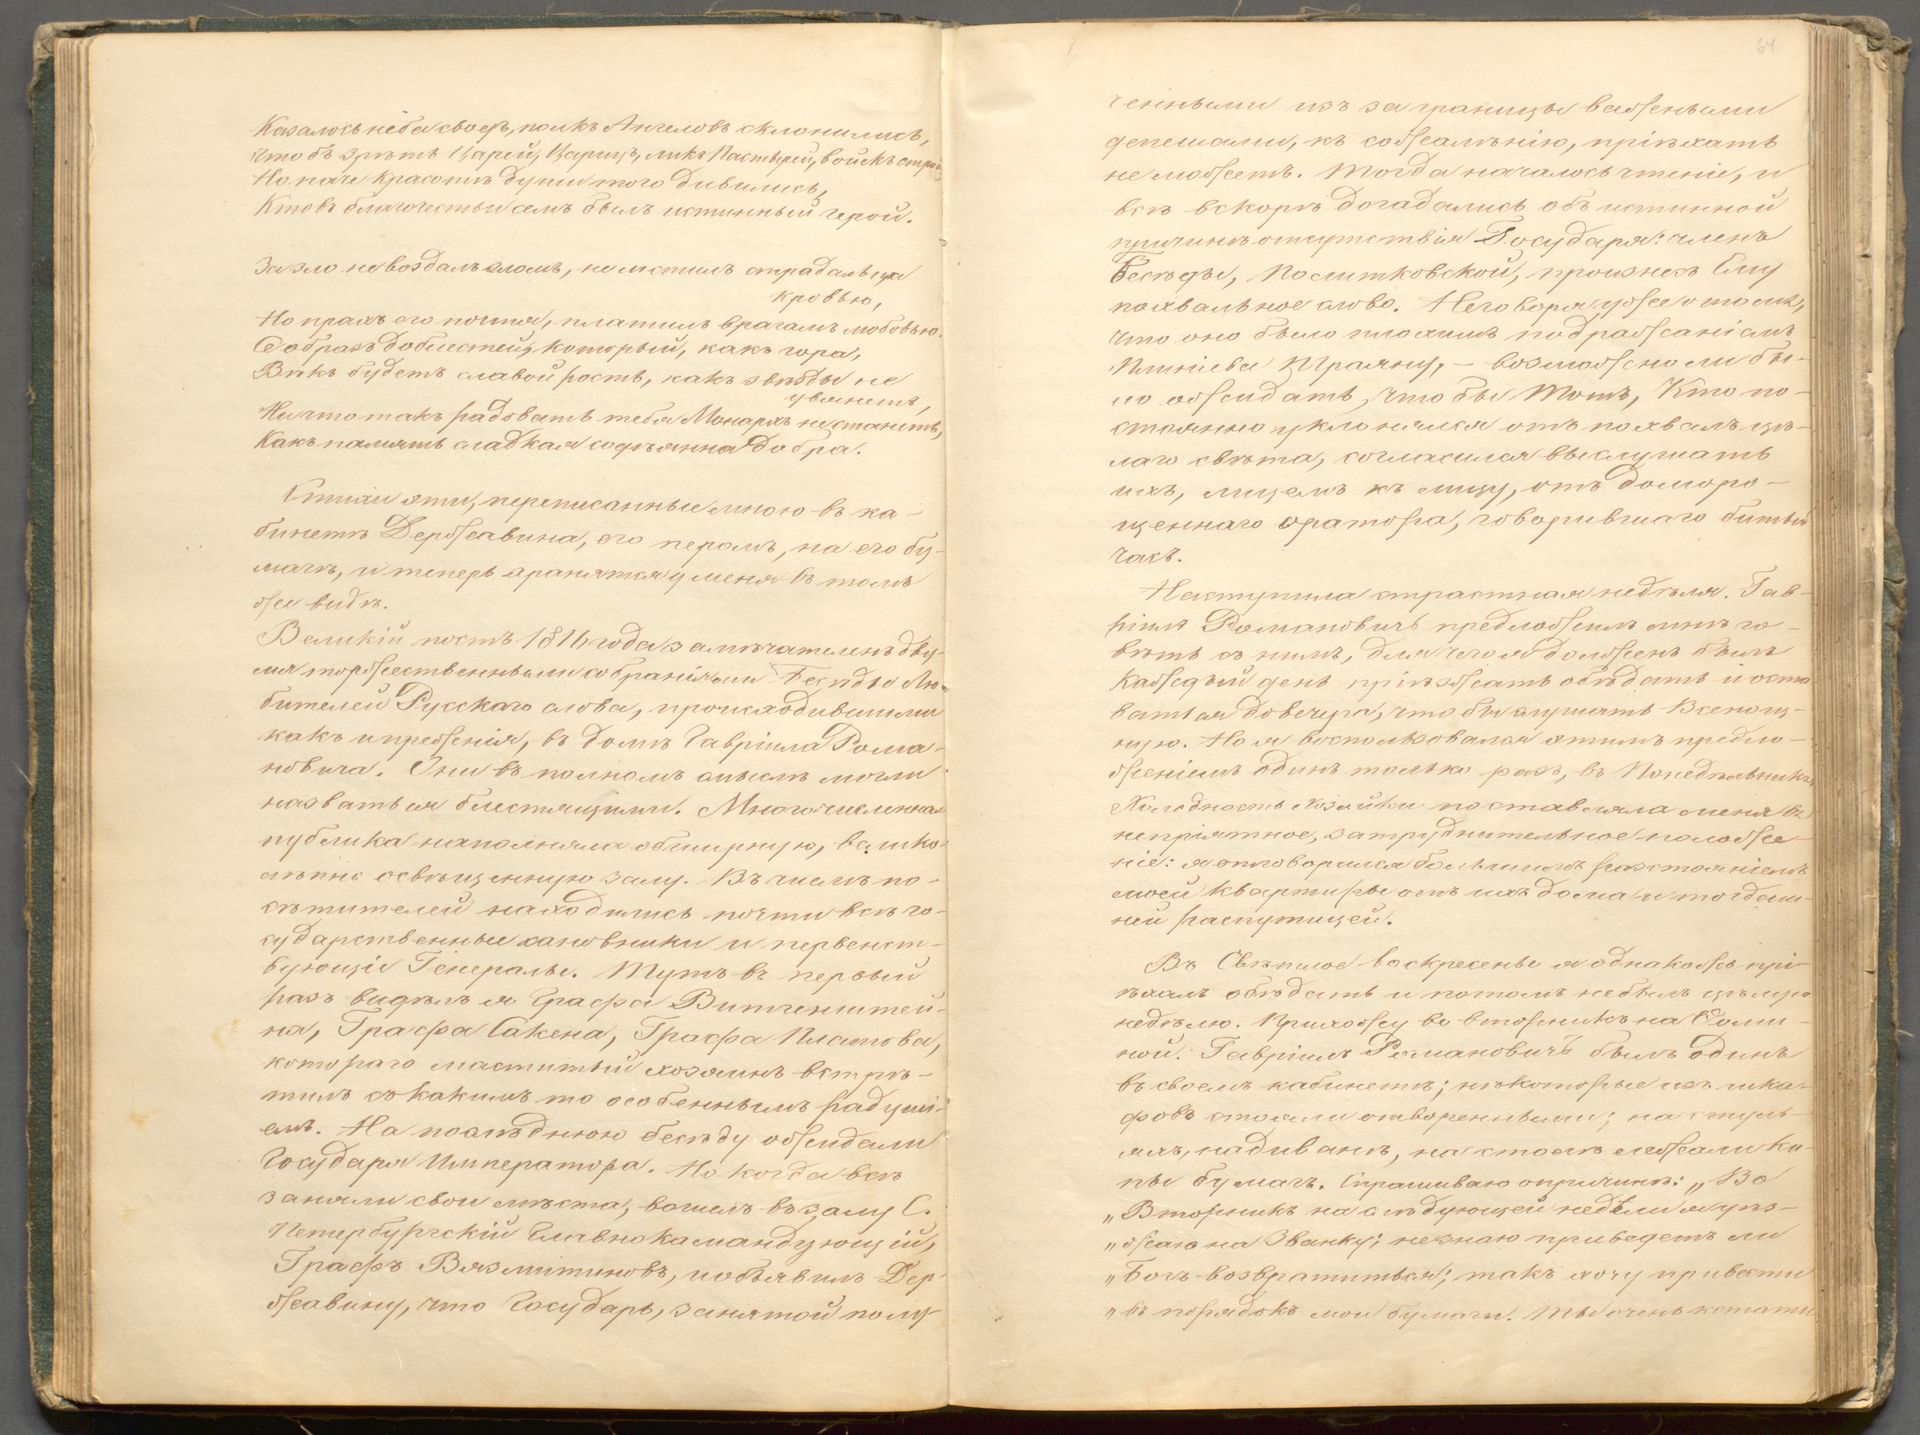 Казалось неба сводъ, полкъ Ангеловъ склонились,
Что бъ зрѣть Царей, Царицъ, ликъ Пастырей, войскъ строй
Но паче красотѣ души того дивились,
Кто въ благочестьи семъ былъ истинный герой.
За зло не воздалъ зломъ, не мстилъ страдальца
кровью,
Но прахъ его почтя, платилъ врагамъ любовью.
Се образъ доблестей, который, какъ гора,
Вѣкъ будетъ славой рость, какъ звѣзды не
увянетъ,
Ничто такъ радовать тебя Монархъ не станетъ,
Какъ память сладкая содѣянна добра.
Стихи эти, переписанные мною въ ка-
бинетѣ Державина, его перомъ, на его бу-
магѣ, и теперь хранятся у меня въ томъ
же видѣ.
Великій постъ 1816 года замѣчателенъ дву-
мя торжественными собраніями Бесѣды Лю-
бителей Русскаго слова, происходившими
какъ и прежнія, въ домѣ Гавріила Рома-
новича. Они въ полномъ смыслѣ могли
назваться блестящими. Многочисленная
публика наполняла обширную, велико-
лѣпно освѣщенную залу. Въ числѣ по-
сѣтителей находились почти всѣ го-
сударственные сановники и первенст-
вующіе Генералы. Тутъ въ первый
разъ видѣлъ я Графа Витгенштей-
на, Графа Сакена, Графа Платова,
котораго маститый хозяинъ встрѣ-
тилъ съ какимъ то особеннымъ радуші-
емъ. На послѣднюю бесѣду ожидали
Государя Императора. Но когда всѣ
заняли свои мѣста, вошелъ въ залу С.
Петербургскій Главнокамандующій,
Графъ Вязмитиновъ, и объявилъ Дер-
жавину, что Государь, занятой полу-
64
ченными изъ за границы важеными
депешами, къ сожеалѣнію, пріѣхать
не можетъ. Тогда началось чтеніе, и
всѣ вскорѣ догадались объ истинной
причинѣ отсутствія Государя: членъ
Бесѣды, Политковской, произнесъ Ему
похвальное слово. Не говоря уже о томъ,
что оно было плохимъ подражаніемъ
Плиніева Траяну, – возможно ли бы-
ло ожидать, что бы Тотъ, Кто по-
стоянно уклонялся отъ похвалъ цѣ-
лаго свѣта, согласился выслушать
ихъ, лицемъ къ лицу, отъ доморо-
щеннаго оратора, говорившаго битый
часъ.
Наступила страстная недѣля. Гав-
ріилъ Романовичъ предложилъ мнѣ го-
вѣть съ нимъ, для чего я долженъ былъ
каждый день пріѣзжать обѣдать и оста
ваться до вечера, что бы слушать Всенощ-
ную. Но я воспользовался этимъ предло-
женіемъ одинъ только разъ, въ Понедѣльникъ,
Холодность хозяйки поставляла меня въ
непріятное, затруднительное положе-
ніе: я отговорился большимъ разстояніемъ
моей квартиры отъ ихъ дома и тогдаш-
ней распутицей.
Въ Свѣтлое воскресенье я однакожъ прі-
ѣхалъ обѣдать и потомъ не былъ цѣлую
недѣлю. Прихожу во вторникъ на Ѳоми-
ной: Гавріилъ Романовичъ былъ одинъ
въ своемъ кабинетѣ; нѣкоторые изъ шка-
фовъ стояли отворенными; на стуль-
яхъ, на диванѣ, на столѣ лежали ки-
пы бумагъ. Спрашиваю о причинѣ: „Во
„Вторникъ на слѣдующей недѣли я уѣз-
„жаю на Званку; не знаю приведетъ ли
„Богъ возвратиться; такъ хочу привести
„въ порядокъ мои бумаги. Ты очень кстати